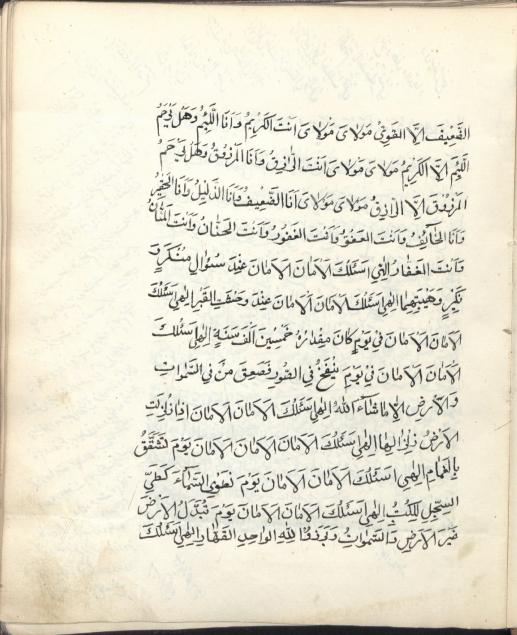 الضَّعِيفَ اِلَّا القَوِيُّ مَوْلَايَ مَوْلَايَ اَنْتَ الكَرِيمُ وَاَنَا اللَّئِيمُ وَهَلْ يَرْحَمُ
اللَّئِيمَ اِلَّا الكَرِيمُ مَوْلَايَ مَوْلَايَ اَنْتَ الرَّازِقُ وَاَنَا المَرْزُوقُ وَهَلْ يَرْحَمُ
المَرْزُوقَ اِلَّا الرَّازِقُ مَوْلَايَ مَوْلَايَ اَنَا الضَّعِيفُ وَاَنَا الذَّلِيلُ وَاَنَا الحَقِيرُ
وَاَنَا الخَائِفُ وَاَنْتَ العَفُوُّ وَاَنْتَ الغَفُورُ وَاَنْتَ الحَنَّانُ وَاَنْتَ المَنَّانُ
وَاَنْتَ الغَفَّارُ اِلٰهِي اَسْئَلُكَ الاَمَانَ الاَمَانَ عِنْدَ سُؤَالِ مُنْكَرٍ وَ
نَكِيرٍ وَهَيْبَتِهِمَا اِلٰهِي اَسْئَلُكَ الاَمَانَ الاَمَانَ عِنْدَ وَحْشَةِ القَبْرِ اِلٰهِي اَسْئَلُكَ
الاَمَانَ الاَمَانَ فِي يَوْمٍ كَانَ مِقْدَارُهُ خَمْسِينَ اَلْفَ سَنَةٍ اِلٰهِي اَسْئَلُكَ
الاَمَانَ الاَمَانَ فِي يَوْمَ يُنْفَخُ فِي الصُّورِ فَصَعِقَ مَنْ فِي السَّمٰوَاتِ
وَالاَرْضِ اِلَّا مَا شَاءَ اللّٰهُ اِلٰهِي اَسْئَلُكَ الاَمَانَ الاَمَانَ اِذَا زُلْزِلَتِ
الاَرْضُ زِلْزَالَهَا اِلٰهِي اَسْئَلُكَ الاَمَانَ الاَمَانَ الاَمَانَ يَوْمَ تَشَقَّقُ
بِالغَمَامِ اِلٰهِي اَسْئَلُكَ الاَمَانَ الاَمَانَ يَوْمَ نَطْوِي السَّمَاءَ كَطَيِّ
السِّجِلِّ لِلْكُتُبِ اِلٰهِي اَسْئَلُكَ الاَمَانَ الاَمَانَ يَوْمَ تُبَدَّلُ الاَرْضُ
غَيْرَ الاَرْضِ وَالسَّمٰوَاتُ وَبَرَزُوا لِلّٰهِ الوَاحِدِ القَهَّارِ اِلٰهِي اَسْئَلُكَ